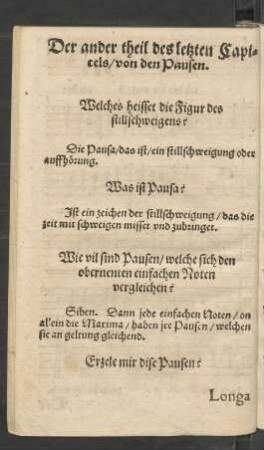 Der ander theil des letzten Capi-
tels/von den Pausen.
Welches heisset die Figur des
stillschweigens?
Die Pausa/das ist/ein stillschweigung oder
auffhörung.
Was ist Pausa?
Ist ein zeichen der stillschweigung/das die
zeit mit schweigen misset vnd zubringet.
Wie vil sind Pausen/welche sich den
obernenten einfachen Noten
vergleichen?
Siben. Dann jede einfachen Noten/on
allein die Maxima/haben jre Pausen/welchen
sie an geltung gleichend.
Erzele mir dise Pausen?
Longa